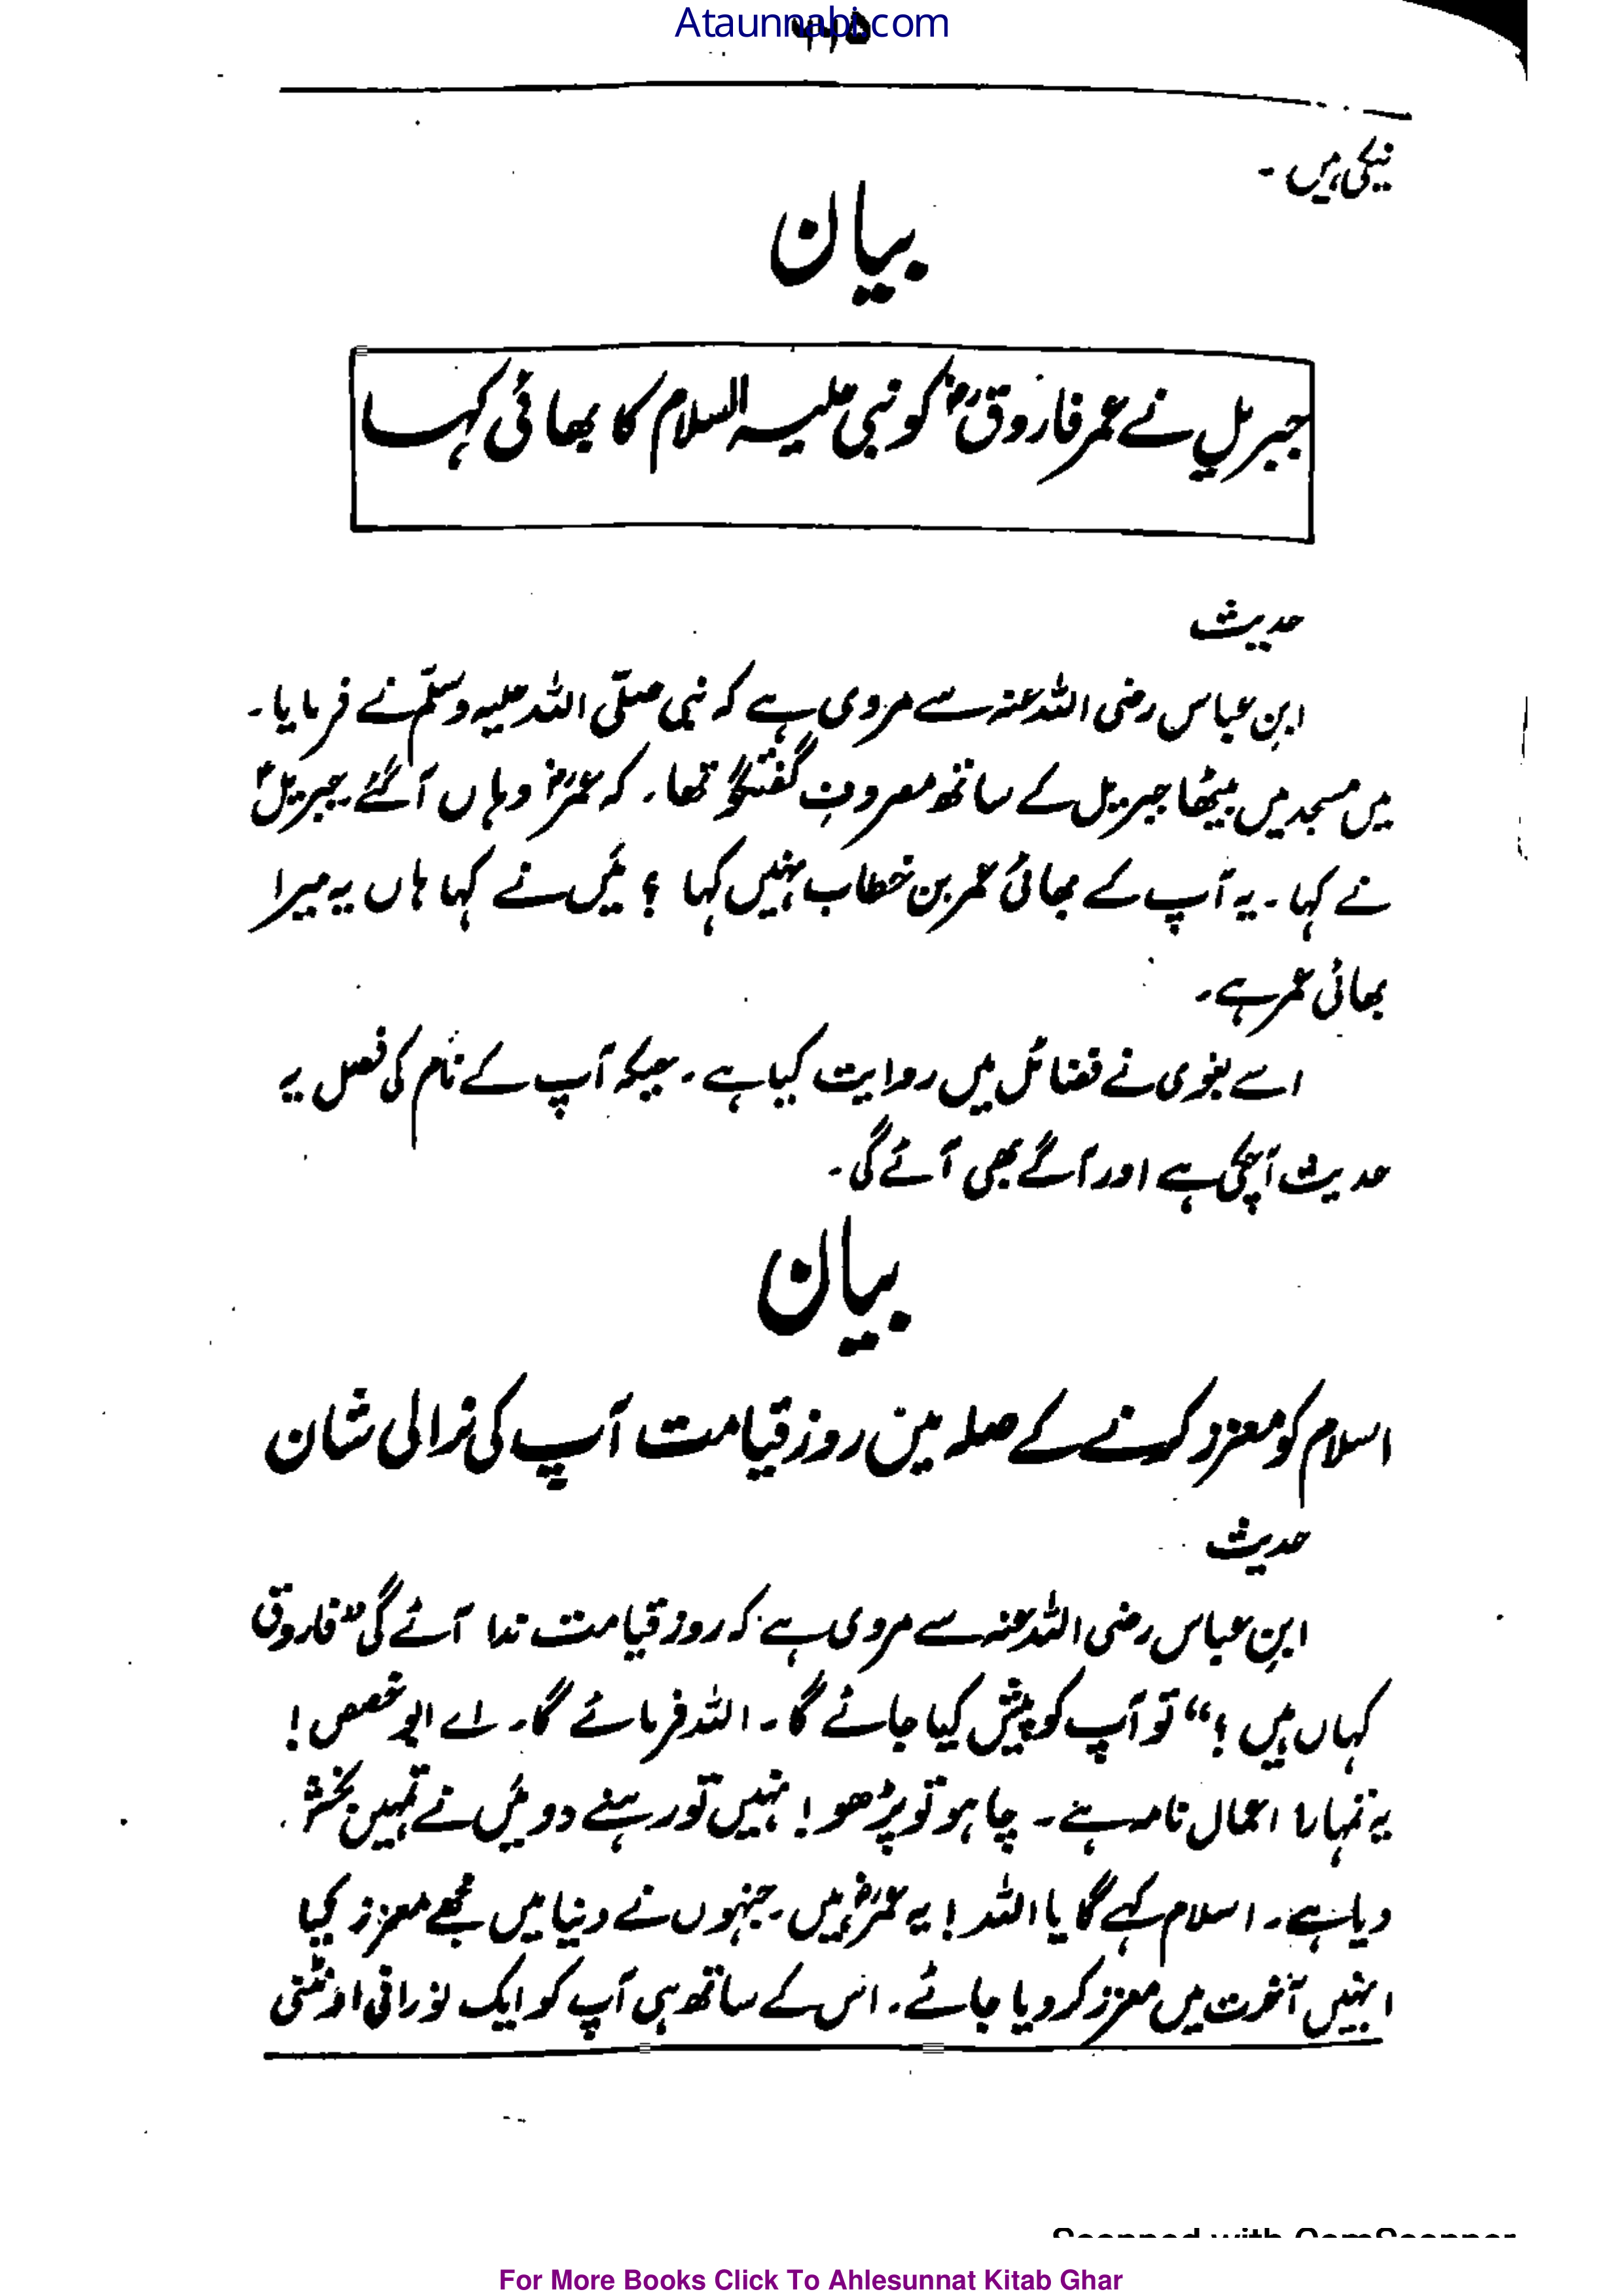 Ataunnabi.com
نیکی ہیں ۔
بیان
جبریل نے عمر فاروقؓ کو نبی علیہ السلام کا بھائی کہا
حدیث
ابنِ عباس رضی اللہ عنہ سے مروی ہے کہ نبی صلّی اللہ علیہ وسلّم نے فرمایا۔
میں مسجد میں بیٹھا جبریل کے ساتھ مصروفِ گفتگو تھا۔ کہ عمرؓ وہاں آگئے۔ جبریلؑ
نے کہا ۔ یہ آپ کے بھائی عمر بن خطاب نہیں کہا ؟ میں نے کہا ہاں یہ میرا
بھائی عمر ہے۔
اسے بغوی نے فضائل میں روایت کیا ہے ۔ جبکہ آپ کے نام کی فصل یہ
حدیث آچکی ہے اور آگے بھی آئے گی ۔
بیان
اسلام کو معزز کرنے کے صلہ میں روز قیامت آپ کی نرالی شان
حدیث
ابنِ عباس رضی اللہ عنہ سے مروی ہے کہ روز قیامت ندا آئے گی ”فاروق
کہاں ہیں ؟“ تو آپ کو پیش کیا جائے گا ۔ اللہ فرمائے گا ۔ اے ابو حفص !
یہ تمہارا اعمال نامہ ہے ۔ چاہو تو پڑھو ! نہیں تو رہنے دو میں نے تمہیں بخش
دیا ہے ۔ اسلام کہے گا یا اللہ ! یہ عمرؓ ہیں ۔ جنہوں نے دنیا میں مجھے معزز کیا
انہیں آخرت میں معزز کر دیا جائے ۔ اس کے ساتھ ہی آپ کو ایک نورانی اونٹنی
Scanned with CamScanner
For More Books Click To Ahlesunnat Kitab Ghar